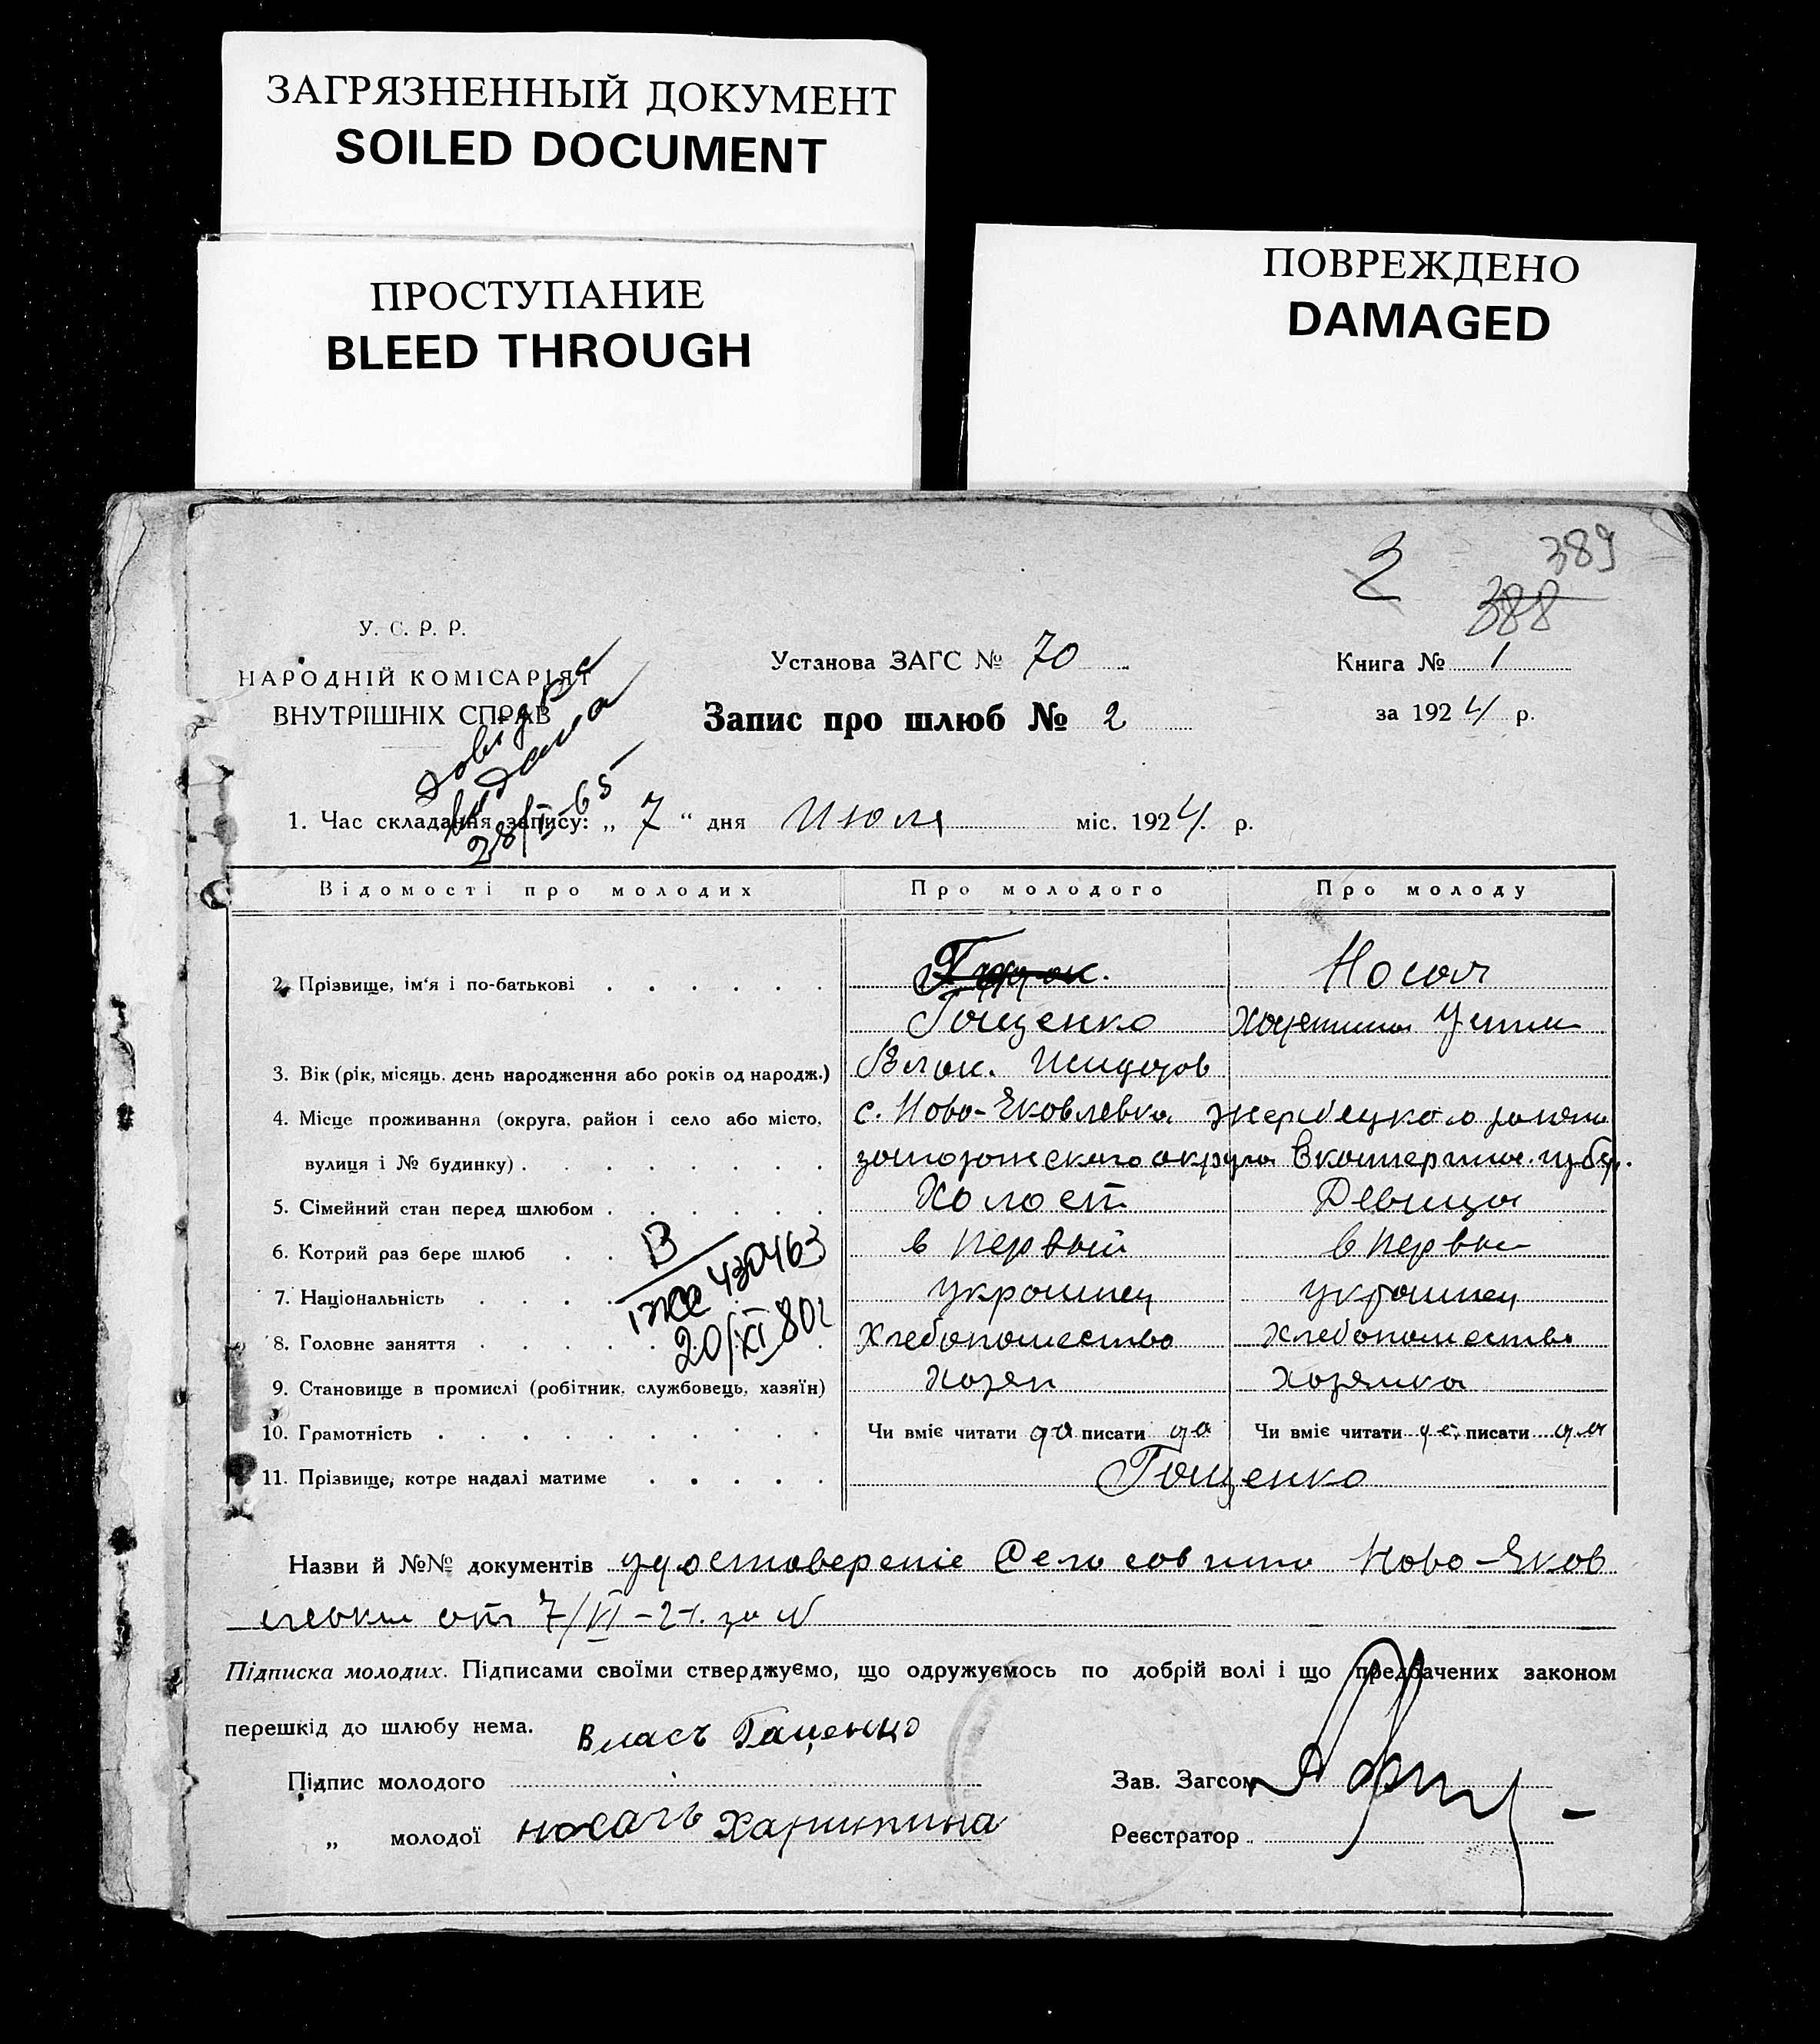 ЗАГРЯЗНЕННЫЙ ДОКУМЕНТ
SOILED DOCUMENT
ПРОСТУПАНИЕ
BLEED THROUGH
ПОВРЕЖДЕНО
DAMAGED
2
389
388
У. С. Р. Р.
НАРОДНІЙ КОМІСАРІЯТ
ВНУТРІШНІХ СПРАВ
Довідка
видана
28/II-65
Установа ЗАГС № 70
Запис про шлюб № 2
Книга № 1
за 1924 р.
1. Час складання запису: „ 7 “ дня Июля міс. 1924. р.
Відомості про молодих Про молодого Про молоду
2. Прізвище, ім‘я і по-батькові
Гащенко
3. Вік (рік, місяць, день народження або років од народж.) Влас.
4. Місце проживання (округа, район і село або місто, с. Ново-Яковлевка Жеребецкого района
вулиця і № будинку) запорожского округа Екатеринос. губер.
5. Сімейний стан перед шлюбом Холост Девица
6. Котрий раз бере шлюб в первый в первый
7. Національність украинец украинец
8. Головне заняття Хлебопашество Хлебопашество
9. Становище в промислі (робітник, службовець, хазяїн) Хозяин хозяйка
10. Грамотність Чи вміє читати да писати да Чи вміє читати да писати да
11. Прізвище, котре надалі матиме Гащенко
430463
20/XI 80
Назви й №№ документів удостоверение Сельсовита Ново-Яков
левки от 7/VI-24. за N
Підписка молодих. Підписами своїми стверджуємо, що одружуємось по добрій волі і що предбачених законом
перешкід до шлюбу нема.
Власъ Гаценко
Підпис молодого
Зав. Загсом
„ молодої носачь Харитина
Реєстратор